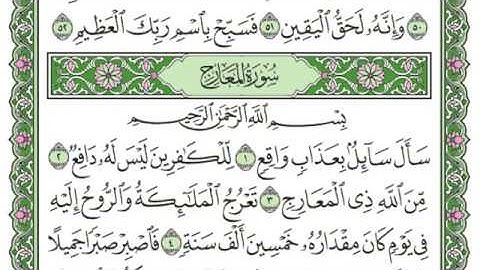 ٥٠ وَإِنَّهُۥ لَحَقُّ ٱلْيَقِينِ ٥١ فَسَبِّحْ بِٱسْمِ رَبِّكَ ٱلْعَظِيمِ ٥٢
سُورَةُ المَعَارِجِ
بِسْمِ ٱللَّهِ ٱلرَّحْمَٰنِ ٱلرَّحِيمِ
سَأَلَ سَآئِلٌۢ بِعَذَابٍ وَاقِعٍ ١ لِّلْكَٰفِرِينَ لَيْسَ لَهُۥ دَافِعٌ ٢
مِّنَ ٱللَّهِ ذِى ٱلْمَعَارِجِ ٣ تَعْرُجُ ٱلْمَلَٰٓئِكَةُ وَٱلرُّوحُ إِلَيْهِ
فِى يَوْمٍ كَانَ مِقْدَارُهُۥ خَمْسِينَ أَلْفَ سَنَةٍ ٤ فَٱصْبِرْ صَبْرًا جَمِيلًا